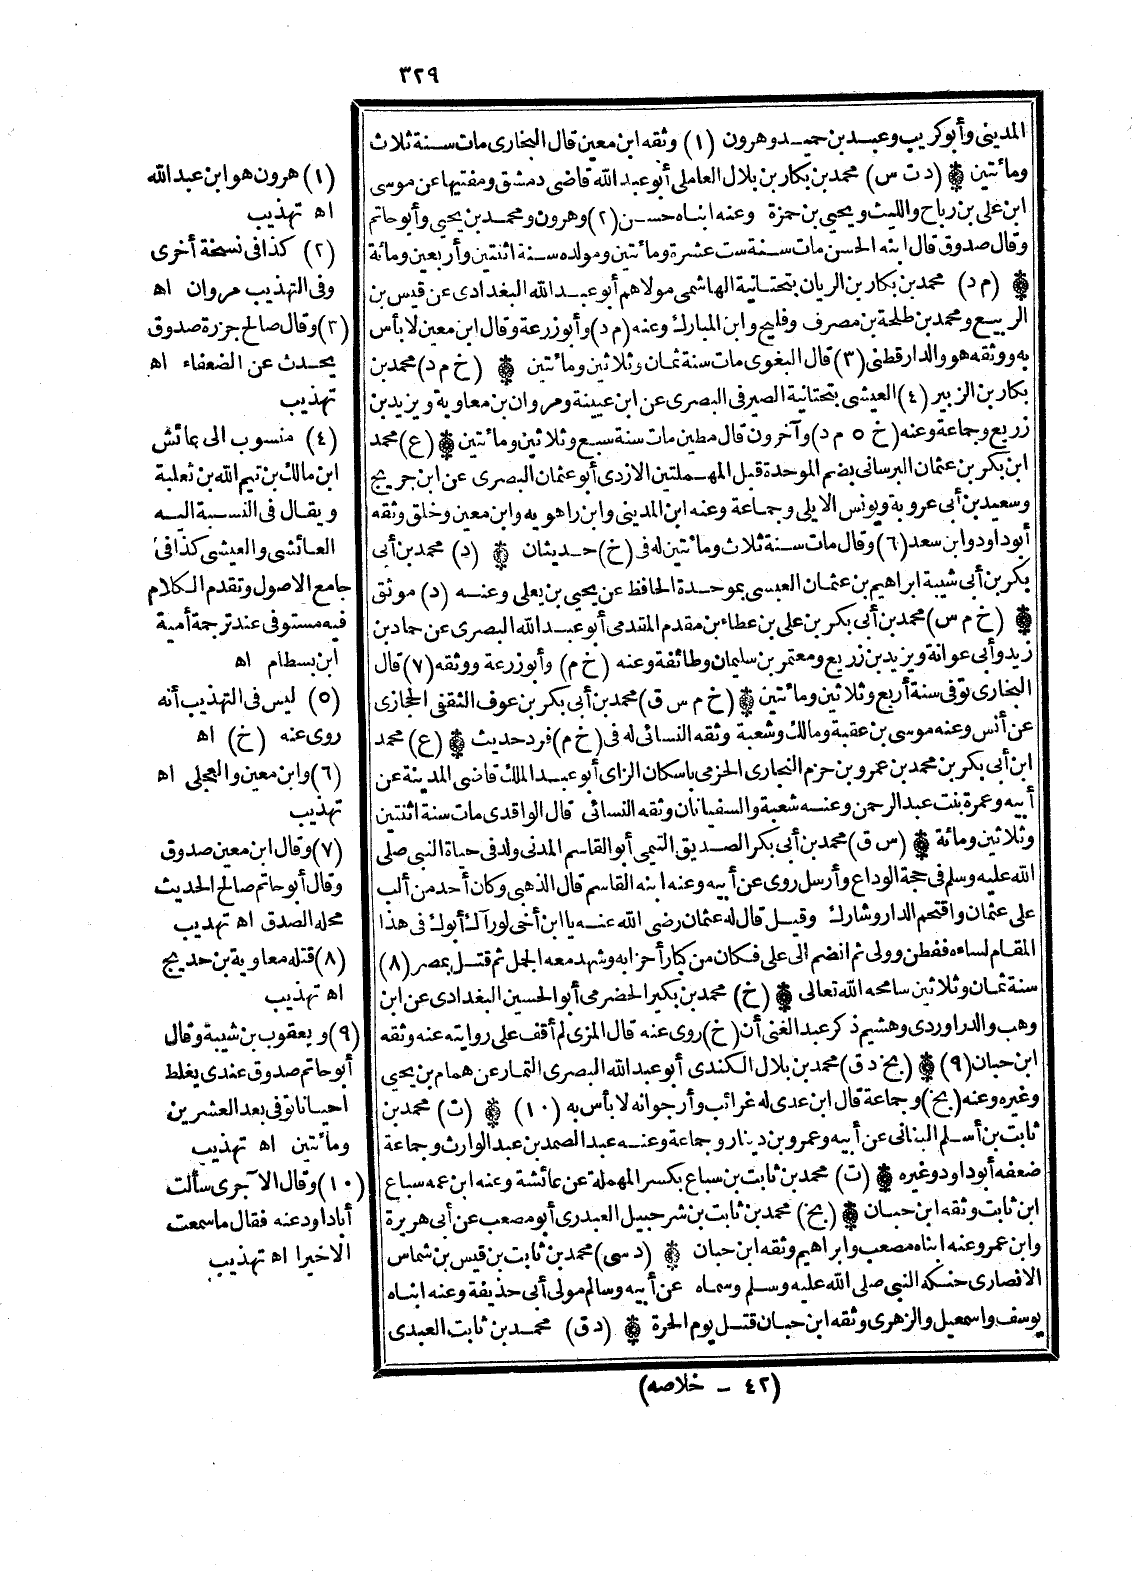 ٣٢٩
المديني وأبو كريب وعبد بن حميد وهرون (١) وثقه ابن معين قال البخاري مات سنة ثلاث
ومائتين ۞ (د ت س) محمد بن بكار بن بلال العاملي أبو عبد الله قاضي دمشق ومفتيها عن موسى
ابن علي بن رباح والليث ويحيى بن حمزة وعنه ابناه حسن (٢) وهرون ومحمد بن يحيى وأبو حاتم
وقال صدوق قال ابنه الحسن مات سنة ست عشرة ومائتين ومولده سنة اثنتين وأربعين ومائة
۞ (م د) محمد بن بكار بن الريان بتحتانية الهاشمي مولاهم أبو عبد الله البغدادي عن قيس بن
الربيع ومحمد بن طلحة بن مصرف وفليح وابن المبارك وعنه (م د) وأبو زرعة وقال ابن معين لا بأس
به ووثقه هو والدارقطني (٣) قال البغوي مات سنة ثمان وثلاثين ومائتين ۞ (خ م د) محمد بن
بكار بن الزبير (٤) العيشي بتحتانية الصيرفي البصري عن ابن عيينة ومروان بن معاوية ويزيد بن
زريع وجماعة وعنه (خ ٥ م د) وآخرون قال مطين مات سنة سبع وثلاثين ومائتين ۞ (ع) محمد
ابن بكر بن عثمان البرساني بضم الموحدة قبل المهملتين الازدي أبو عثمان البصري عن ابن جريج
وسعيد بن أبي عروبة ويونس الايلي وجماعة وعنه ابن المديني وابن راهويه وابن معين وخلق وثقه
أبو داود وابن سعد (٦) وقال مات سنة ثلاث ومائتين له في (خ) حديثان ۞ (د) محمد بن أبي
بكر بن أبي شيبة ابراهيم بن عثمان العبسي بموحدة الحافظ عن يحيى بن يعلى وعنه (د) موثق
۞ (خ م س) محمد بن أبي بكر بن علي بن عطاء بن مقدم المقدمي أبو عبد الله البصري عن حماد بن
زيد وأبي عوانة ويزيد بن زريع ومعتمر بن سليمان وطائفة وعنه (خ م) وأبو زرعة ووثقه (٧) قال
البخاري توفي سنة أربع وثلاثين ومائتين ۞ (خ م س ق) محمد بن أبي بكر بن عوف الثقفي الحجازي
عن أنس وعنه موسى بن عقبة ومالك وشعبة وثقه النسائي له في (خ م) فرد حديث ۞ (ع) محمد
ابن أبي بكر بن محمد بن عمرو بن حزم النجاري الحزمي باسكان الزاي أبو عبد الملك قاضي المدينة عن
أبيه وعمرة بنت عبد الرحمن وعنه شعبة والسفيانان وثقه النسائي قال الواقدي مات سنة اثنتين
وثلاثين ومائة ۞ (س ق) محمد بن أبي بكر الصديق التيمي أبو القاسم المدني ولد في حياة النبي صلى
الله عليه وسلم في حجة الوداع وأرسل روى عن أبيه وعنه ابنه القاسم قال الذهبي وكان أحد من ألب
على عثمان واقتحم الدار وشارك وقيل قال له عثمان رضي الله عنه يا ابن أخي لو رآك أبوك في هذا
المقام لساءه ففطن وولى ثم انضم الى علي فكان من كبار أحزابه وشهد معه الجمل ثم قتل بمصر (٨)
سنة ثمان وثلاثين سامحه الله تعالى ۞ (خ) محمد بن بكير الحضرمي أبو الحسين البغدادي عن ابن
وهب والدراوردي وهشيم ذكر عبد الغني أن (خ) روى عنه قال المزي لم أقف على روايته عنه وثقه
ابن حبان (٩) ۞ (بخ د ق) محمد بن بلال الكندي أبو عبد الله البصري التمار عن همام بن يحيى
وغيره وعنه (بخ) وجماعة قال ابن عدي له غرائب وأرجو انه لا بأس به (١٠) ۞ (ت) محمد بن
ثابت بن أسلم البناني عن أبيه وعمرو بن دينار وجماعة وعنه عبد الصمد بن عبد الوارث وجماعة
ضعفه أبو داود وغيره ۞ (ت) محمد بن ثابت بن سباع بكسر المهملة عن عائشة وعنه ابن عمه سباع
ابن ثابت وثقه ابن حبان ۞ (بخ) محمد بن ثابت بن شرحبيل العبدري أبو مصعب عن أبي هريرة
وابن عمر وعنه ابناه مصعب وابراهيم وثقه ابن حبان ۞ (د سي) محمد بن ثابت بن قيس بن شماس
الانصاري حنكه النبي صلى الله عليه وسلم وسماه عن أبيه وسالم مولى أبي حذيفة وعنه ابناه
يوسف واسمعيل والزهري وثقه ابن حبان قتل يوم الحرة ۞ (د ق) محمد بن ثابت العبدي
(١) هرون هو ابن عبد الله
اه تهذيب
(٢) كذا في نسخة أخرى
وفي التهذيب مروان اه
(٣) وقال صالح جزرة صدوق
يحدث عن الضعفاء اه
تهذيب
(٤) منسوب الى عائش
ابن مالك بن تيم الله بن ثعلبة
ويقال في النسبة اليه
العائشي والعيشي كذا في
جامع الاصول وتقدم الكلام
فيه مستوفى عند ترجمة أمية
ابن بسطام اه
(٥) ليس في التهذيب أنه
روى عنه (خ) اه
(٦) وابن معين والعجلي اه
تهذيب
(٧) وقال ابن معين صدوق
وقال أبو حاتم صالح الحديث
محله الصدق اه تهذيب
(٨) قتله معاوية بن حديج
اه تهذيب
(٩) ويعقوب بن شيبة وقال
أبو حاتم صدوق عندي يغلط
احيانا توفي بعد العشرين
ومائتين اه تهذيب
(١٠) وقال الآجري سألت
أبا داود عنه فقال ما سمعت
الا خيرا اه تهذيب
(٤٢ - خلاصه)